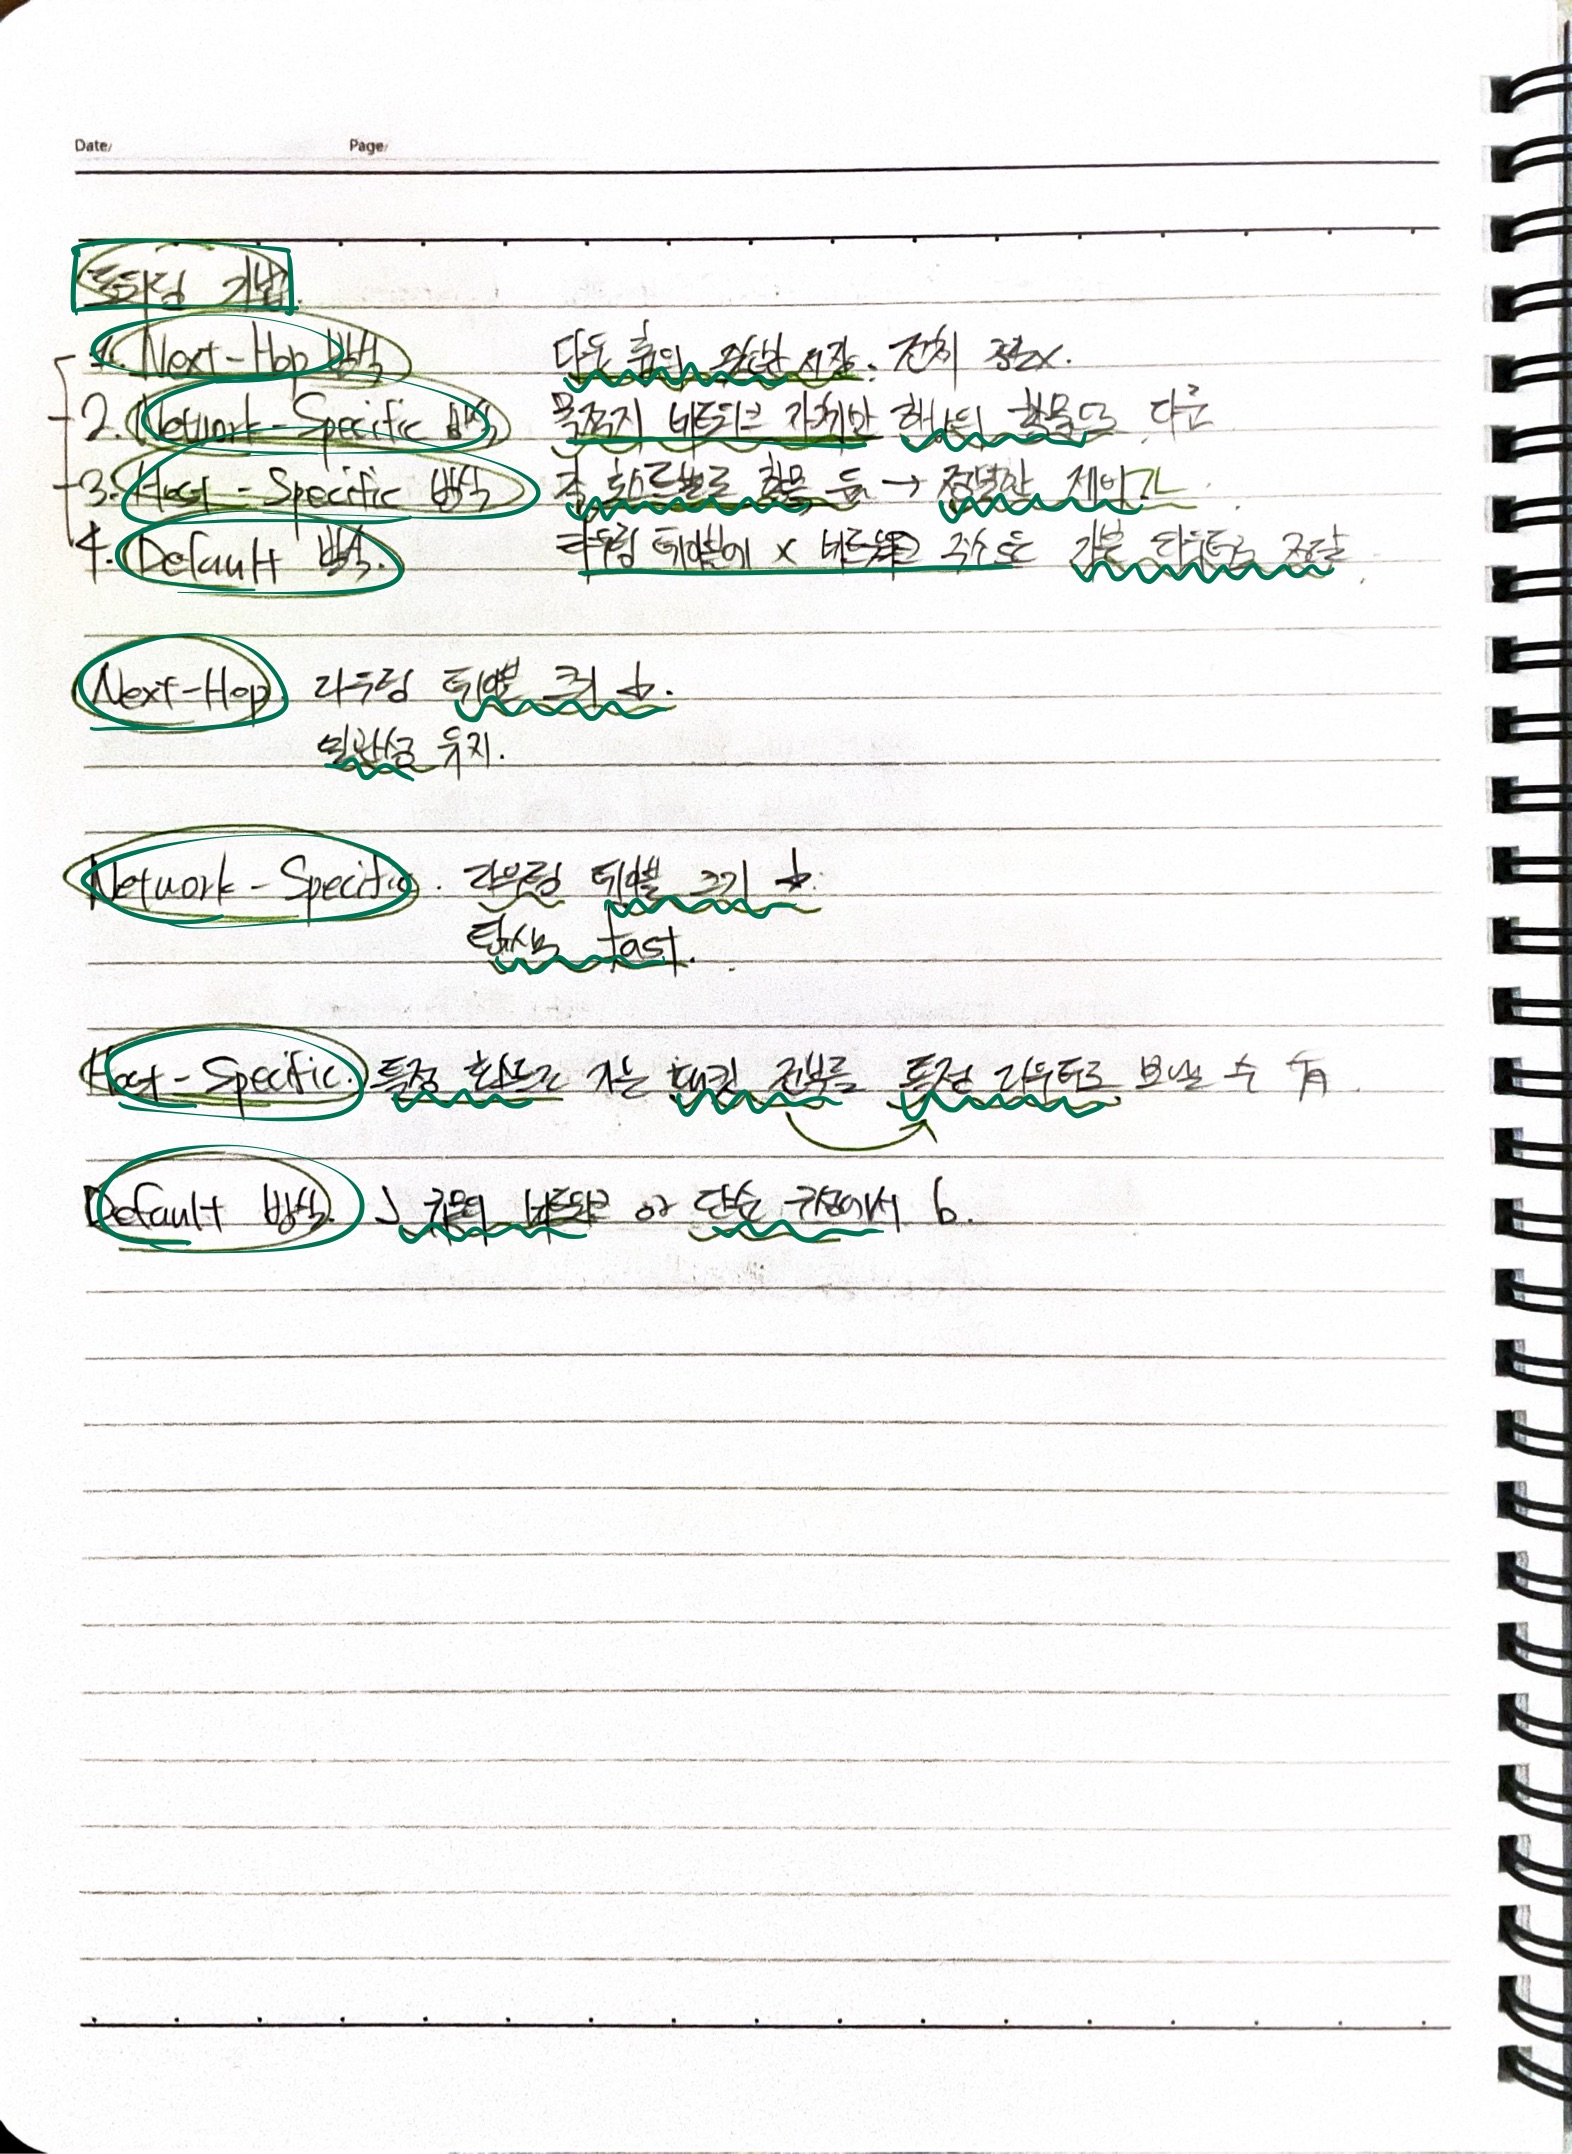 Date/ Page/
포워딩 기법.
1. Next-Hop 방식 다음 홉의 정보만 저장. 전체 경로x.
2. Network-Specific 방식 목적지 네트워크 자체만 하나의 항목으로 다룬
3. Host-Specific 방식 각 호스트별로 항목 둠 → 정밀한 제어
4. Default 방식. 라우팅 테이블에 x 네트워크 주소는 기본 라우터로 전달
Next-Hop 라우팅 테이블 크기 ↓.
일관성 유지.
Network-Specific. 라우팅 테이블 크기 ↓.
탐색 fast.
Host-Specific. 특정 호스트로 가는 패킷 전부를 특정 라우터로 보낼 수 有.
Default 방식. 네트워크 or 단순 구성에서